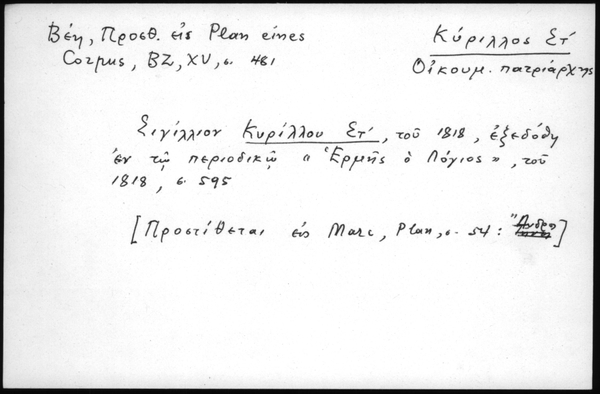 Βέη, Προσθ. εἰς Plan eines
Corpus, BZ, XV, σ. 481
Κύριλλος Στ'
Οἰκουμ. πατριάρχης
Σιγίλλιον Κυρίλλου Στ', τοῦ 1818, ἐξεδόθη
ἐν τῷ περιοδικῷ « Ἑρμῆς ὁ Λόγιος », τοῦ
1818, σ. 595
[Προστίθεται εἰς Marc, Plan, σ. 54 : "]